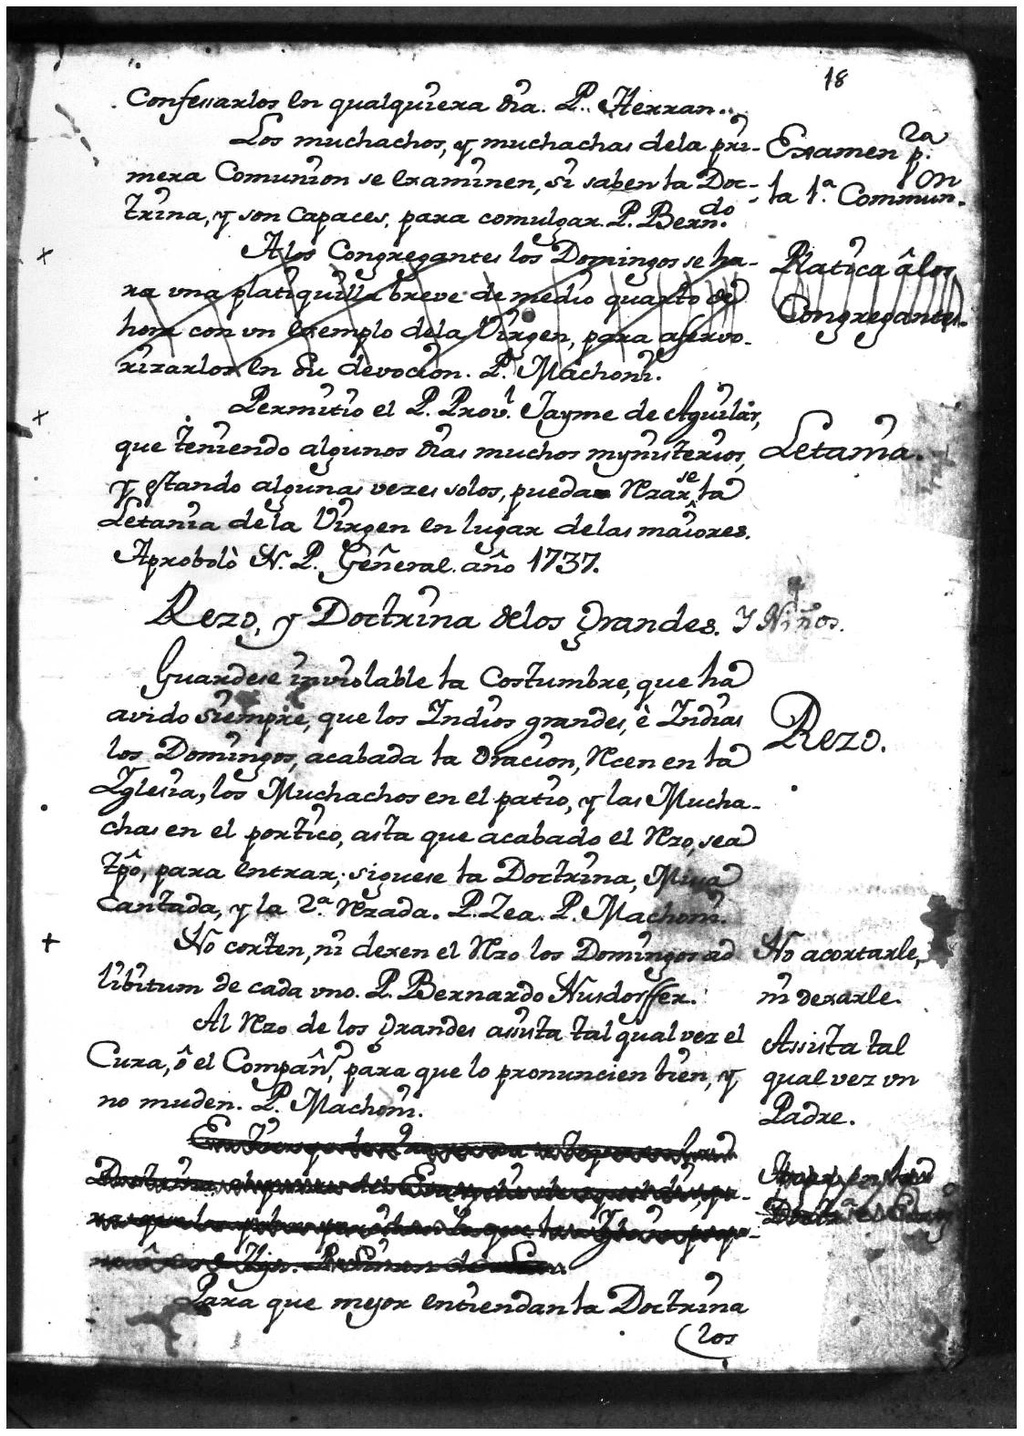 18
confessarlos en qualquiera dia. P. Herran.
Los muchachos, y muchachas dela pri-
mera Comunion se examinen, si saben la Doc-
trina, y son capaces, para comulgar. P. Bern.do
Examen p.ra
la 1.a Commun.on
A los Congregantes los Domingos se ha-
ra vna platiquilla breve de medio quarto de
hora con vn exemplo dela Virgen, para afervo-
rizarlos en su devocion. P. Machoni.
Platica â los
Congregantes.
Permitio el P. Prov.l Jayme de Aguilar,
que teniendo algunos dias muchos mynisterios,
y estando algunas vezes solos, pueda rezarse la
Letania dela Virgen en lugar delas maiores.
Aprobolò N. P. Gêneral. año 1737.
Letania.
Rezo, y Doctrina delos Grandes. Y Niños.
Guardese inviolable la Costumbre, que ha
avido siempre, que los Indios grandes, è Indias
los Domingos, acabada la Oracion, recen en la
Iglesia, los Muchachos en el patio, y las Mucha-
chas en el portico, asta que acabado el rezo, sea
tpô, para entrar; siguese la Doctrina, Missa
Cantada, y la 2.a rezada. P. Zea. P. Machoni.
Rezo.
No corten, ni dexen el rezo los Domingos ad
libitum de cada vno. P. Bernardo Nusdorffer.
No acortarle,
ni dexarle.
Al rezo de los Grandes assista tal qual vez el
Cura, ô el Compañ.o, para que lo pronuncien bien, y
no muden. P. Machoni.
Assista tal
qual vez vn
Padre.
Para que mejor entiendan la Doctrina
los